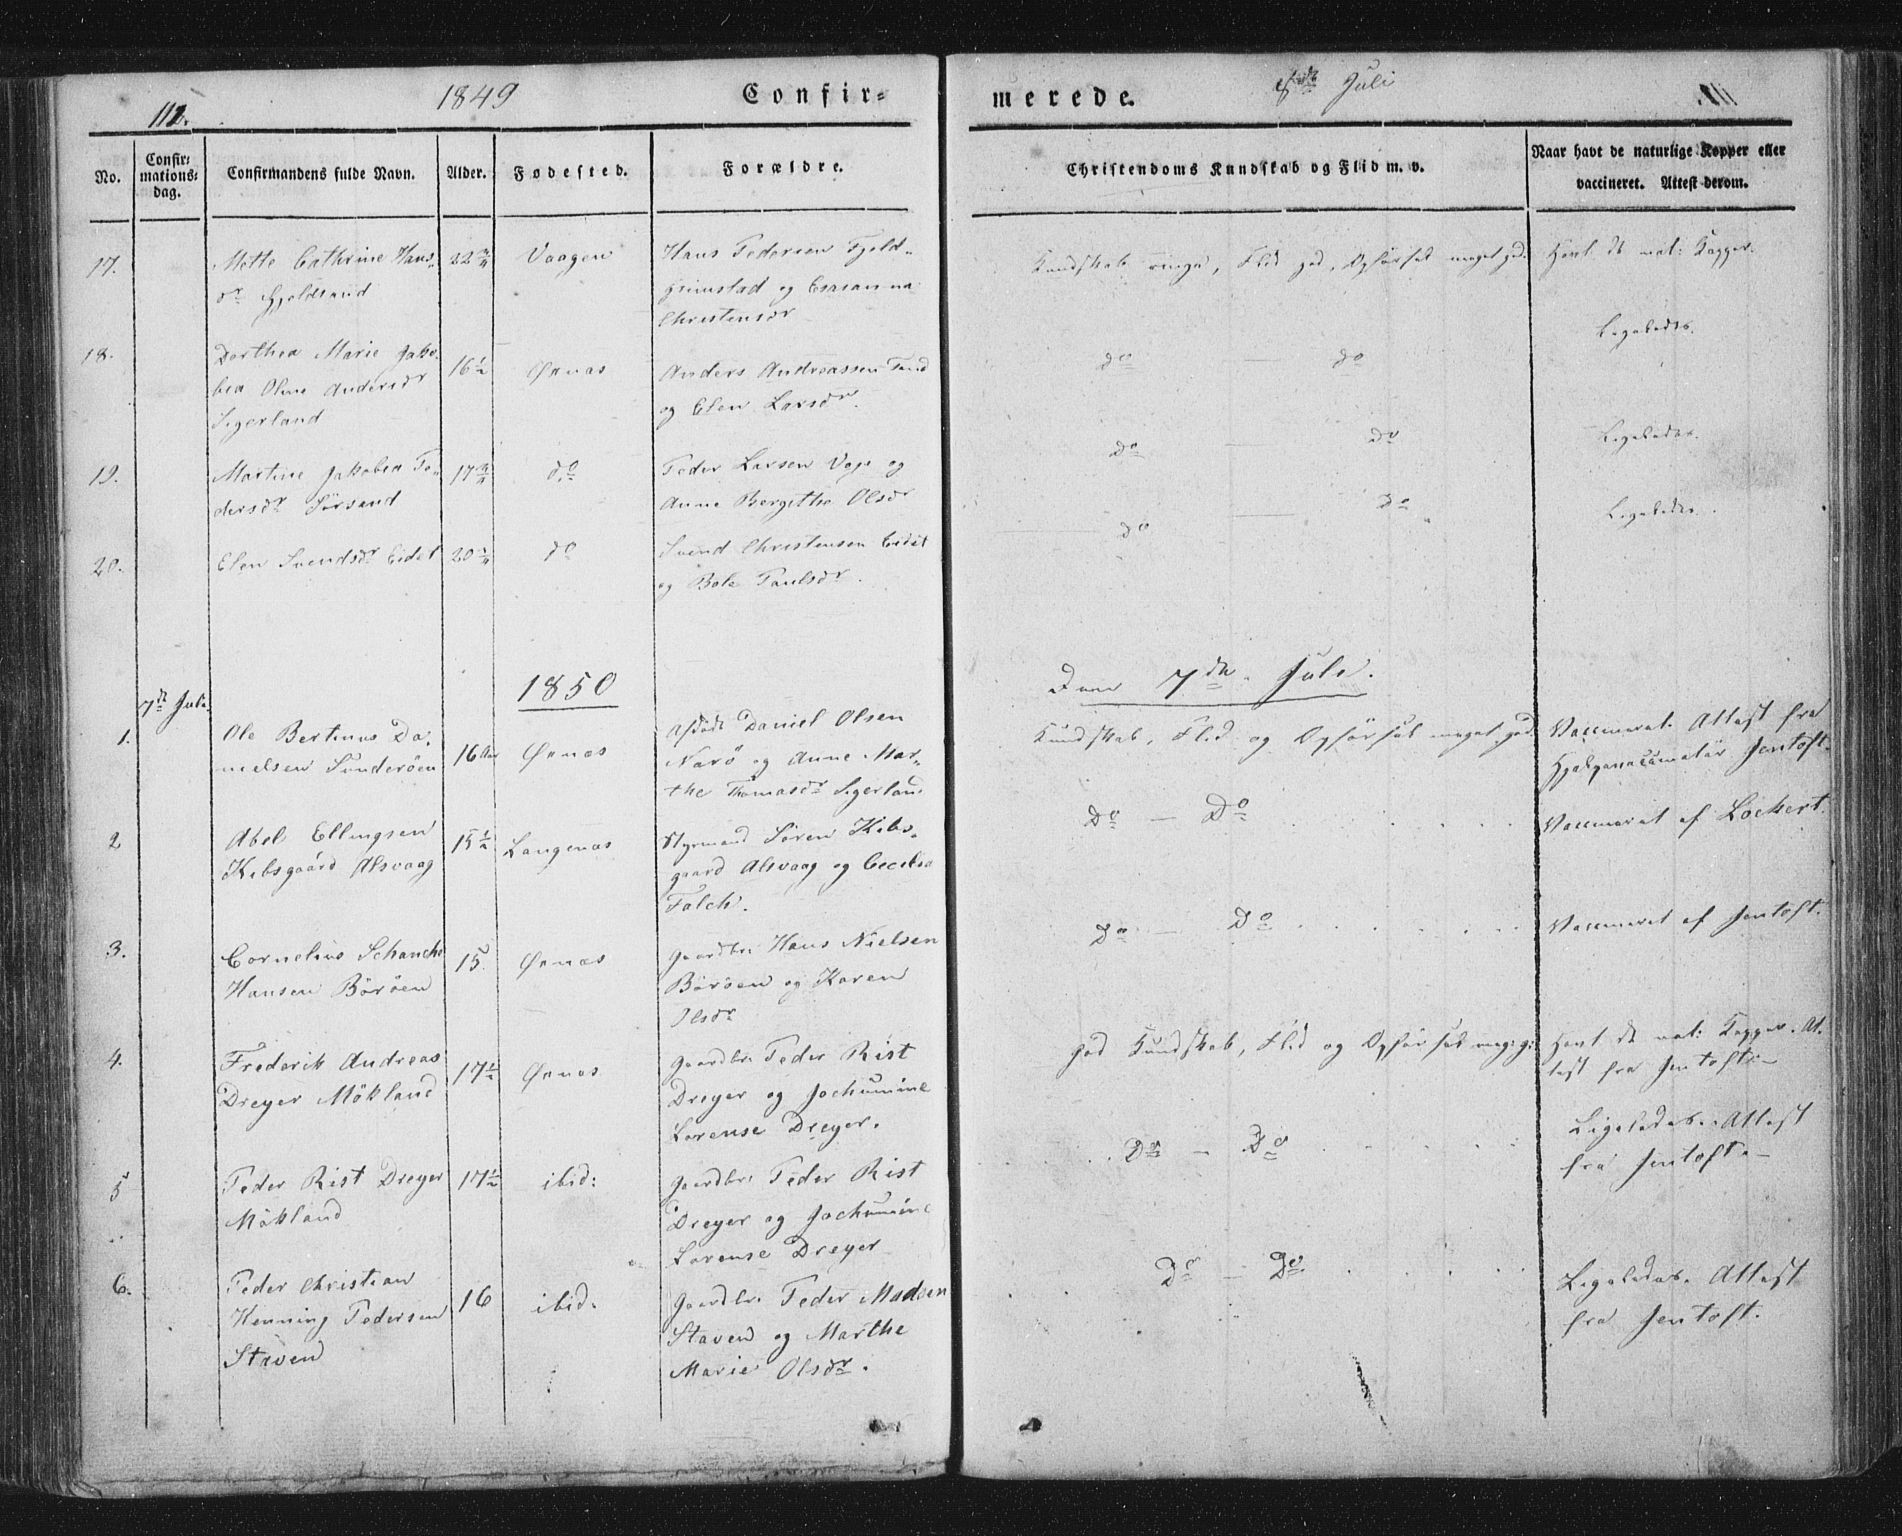 112.
1849
Confir-
merede.
8de Juli
No.
Confir-
mations-
dag.
Confirmandens fulde Navn.
Alder.
Fødested.
Forældre.
Christendoms Kundskab og Flid m. v.
Naar havt de naturlige Kopper eller
vaccineret. Attest derom.
17.
Mette Cathrine Hans-
dr Gjeldsand
22
Vaagen
Hans Pedersen Fjeld-
grimstad og Susanna
Christensdr
Kundskab ringe, Flid god, Opførsel meget god.
Havt de nat: Kopper.
18.
Dorthea Marie Jako-
bea Oline Andersdr
Sigerland
16 1/2
Øxnæs
Anders Andreassen Sund
og Elen Larsdr.
do — do
Ligeledes.
19.
Martine Jakobea Pe-
dersdr Sørsand
17
do
Peder Larsen Vage og
Anne Bergithe Olsdr
do — do
Ligeledes.
20.
Elen Svendsdr Eidet
20
do
Svend Christensen Eidet
og Bole Paulsdr.
do — do
Ligeledes.
1850
Den 7de Juli.
7de Juli.
1.
Ole Bertinus Da-
nielsen Tinderøen
16 Aar
Øxnæs
Afdøde Daniel Olsen
Nærø og Anne Mar-
the Thomasdr Sigerland
Kundskab, Flid og Opførsel meget god.
Vaccineret. Attest fra
Hjelpevaccinatør Jentoft.
2
Abel Ellingsen
Kibsgaard Alsvaag
15 1/2
Langenæs
Styrmand Søren Kibs-
gaard Alsvaag og Cecilia
Falch.
Do — Do
Vaccineret af Lockert.
3.
Cornelius Schanche
Hansen Børøen
15
Øxnæs
Gaardbr: Hans Nielsen
Børøen og Karen
Olsdr
Do — Do
Vaccineret af Jentoft.
4.
Frederik Andreas
Dreyer Mökland
17 1/2
Øxnæs
Gaardbr: Peder Rist
Dreyer og Jochumine
Lorense Dreyer.
God Kundskab, Flid og Opførsel meg: g:
Havt de nat: Kopper. At-
test fra Jentoft.—
5
Peder Rist Dreyer
Mökland
17 1/2
ibid:
Gaardbr: Peder Rist
Dreyer og Jochumine
Lorense Dreyer
Do — Do
Ligeledes. Attest
fra Jentoft.—
6.
Peder Christian
Henning Pedersen
Staven
16
ibid.
Gaardbr: Peder Madsen
Staven og Marthe
Marie Olsdr.
Do — Do
Ligeledes. Attest
fra Jentoft.